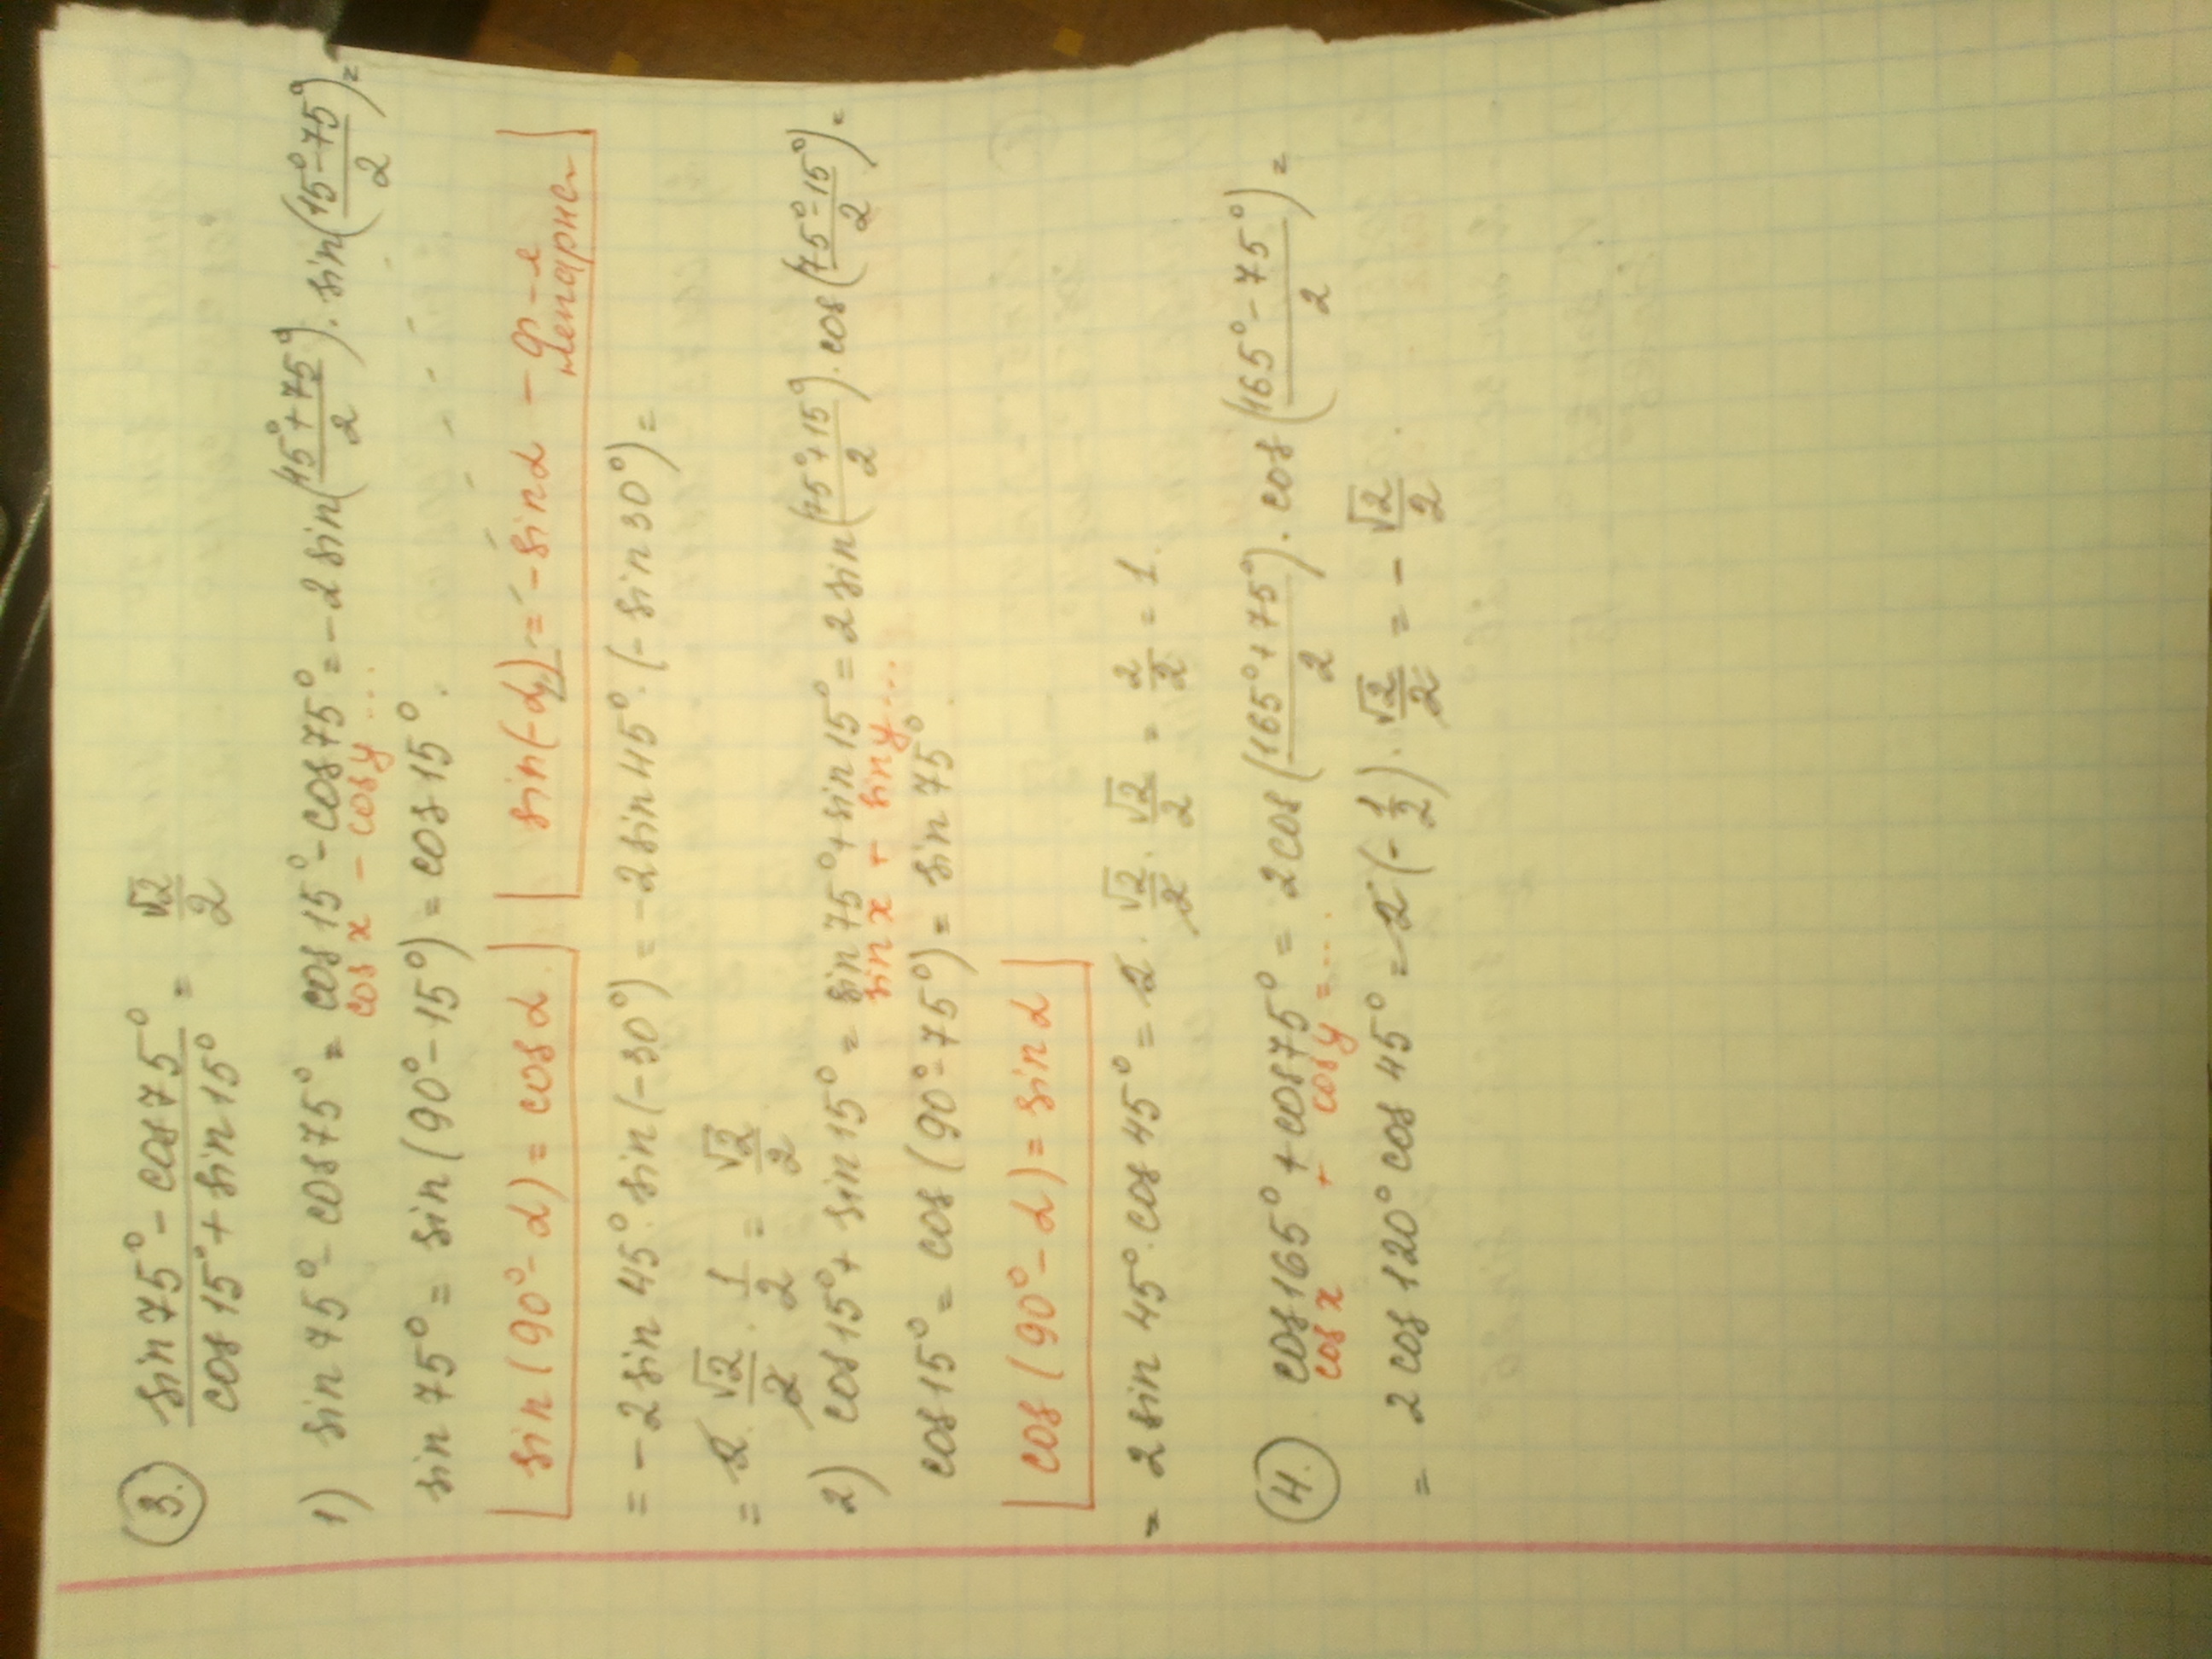 3. (sin75° - cos75°)/(cos15° + sin15°) = √2/2
1) sin75° - cos75° = cos15° - cos75° = -2sin((15°+75°)/2)·sin((15°-75°)/2) =
cos x - cosy ...
sin75° = sin(90°-15°) = cos15°.
sin(90°-α) = cosα. sin(-α) = -sinα - ф-я непарнс
= -2sin45°·sin(-30°) = -2sin45°·(-sin30°) =
= 2·√2/2·1/2 = √2/2
2) cos15° + sin15° = sin75° + sin15° = 2sin((75°+15°)/2)·cos((75°-15°)/2) =
sin x + siny ...
cos15° = cos(90°-75°) = sin75°.
cos(90°-α) = sinα
= 2sin45°·cos45° = 2·√2/2·√2/2 = 2/2 = 1.
4. cos165° + cos75° = 2cos((165°+75°)/2)·cos((165°-75°)/2) =
cos x + cosy = ...
= 2cos120°cos45° = 2(-1/2)·√2/2 = -√2/2.